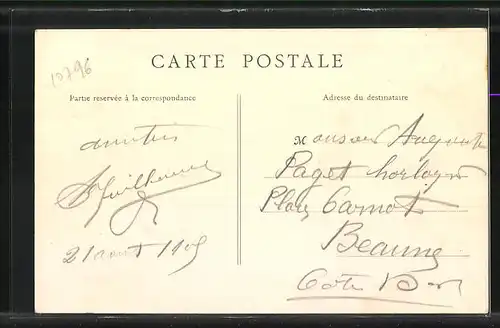 10796
CARTE POSTALE
Partie reservée à la correspondance
Adresse du destinataire
amitiés
Guillemin
21 août 1905
Monsieur Auguste
Paget horloger
Place Carnot
Beaune
Côte D'or